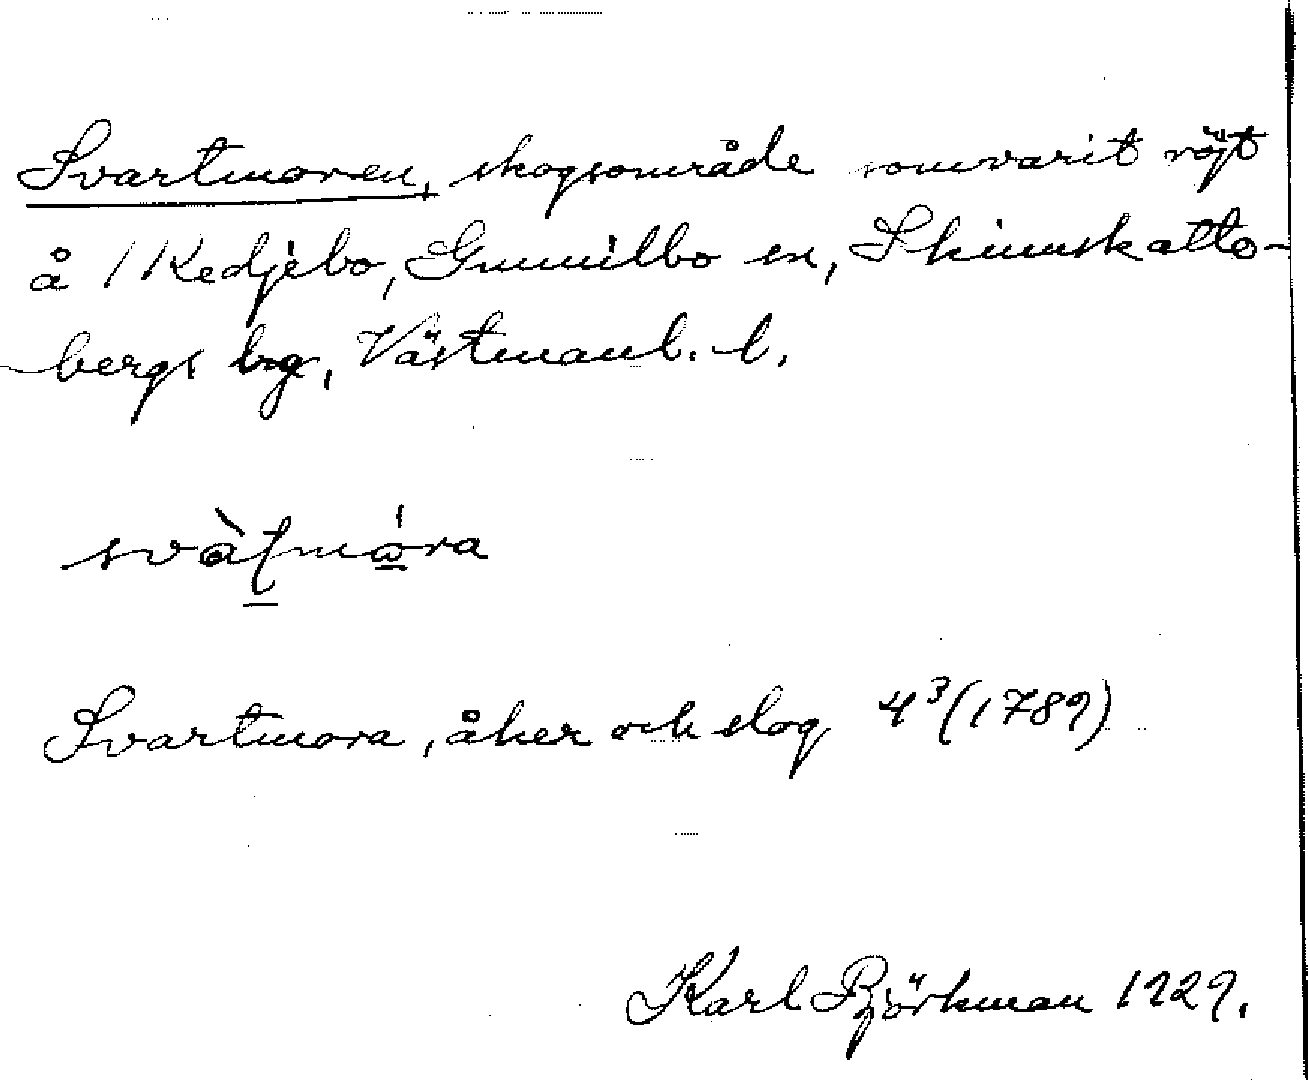 Svartmoren, skogsområde som varit röjt
å 1 Kedjebo, Gunnilbo sn, Skinnskatte-
bergs bg, Västmanl. l.
Svartmora, åker och slog 4³ (1789)
Karl Björkman 1929.